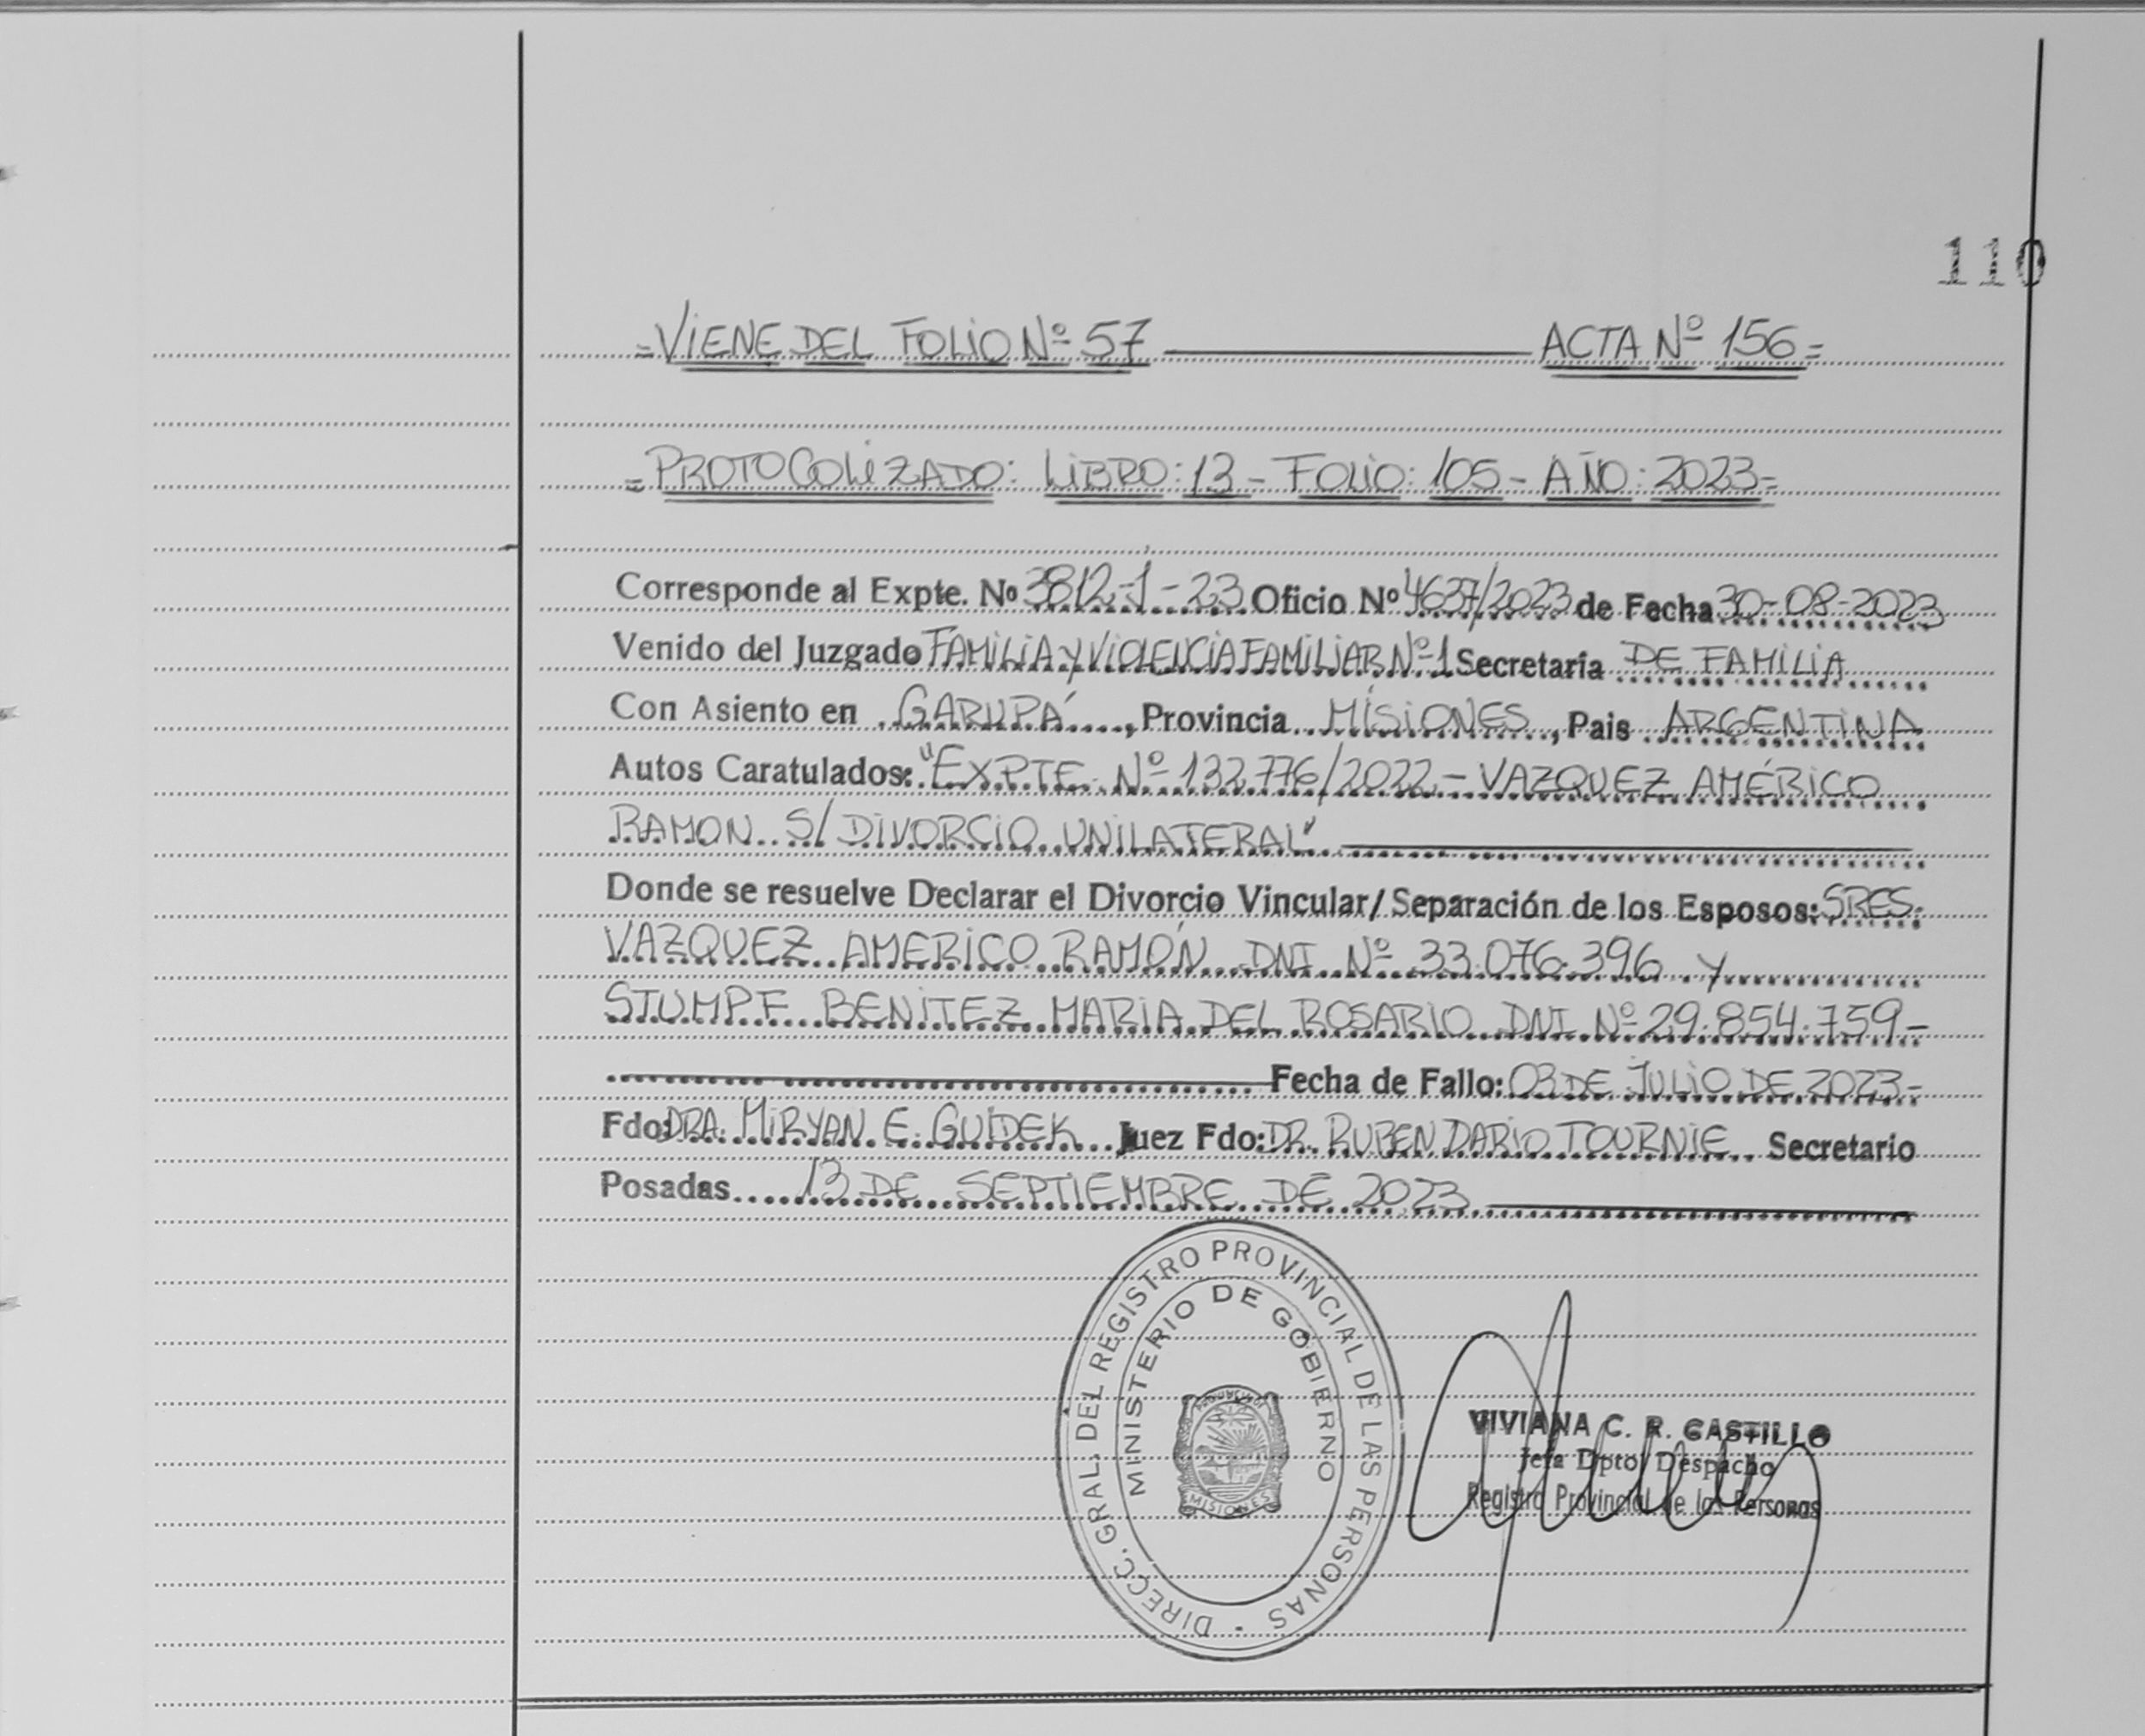 110
=VIENE DEL FOLIO Nº 57 ACTA Nº 156=
=PROTOCOLIZADO: LIBRO: 13 - FOLIO: 105 - AÑO: 2023=
Corresponde al Expte. Nº 3812-1-23 Oficio Nº 4637/2023 de Fecha 30-08-2023
Venido del Juzgado FAMILIA Y VIOLENCIA FAMILIAR Nº 1 Secretaría DE FAMILIA
Con Asiento en GARUPÁ, Provincia MISIONES, Pais ARGENTINA
Autos Caratulados: "EXPTE. Nº 132.776/2022 - VAZQUEZ AMÉRICO
RAMON S/ DIVORCIO UNILATERAL"
Donde se resuelve Declarar el Divorcio Vincular/ Separación de los Esposos: SRES.
VAZQUEZ AMERICO RAMÓN DNI Nº 33.076.396 Y
STUMPF BENITEZ MARIA DEL ROSARIO DNI Nº 29.854.759-
Fecha de Fallo: 03 DE JULIO DE 2023-
Fdo: DRA. MIRYAN E. GUIDEK Juez Fdo: DR. RUBEN DARIO TOURNIE Secretario
Posadas 13 DE SEPTIEMBRE DE 2023
DIRECC. GRAL. DEL REGISTRO PROVINCIAL DE LAS PERSONAS -
MINISTERIO DE GOBIERNO
PROVINCIA DE
MISIONES
VIVIANA C. R. CASTILLO
Jefa Dpto. Despacho
Registro Provincial de las Personas